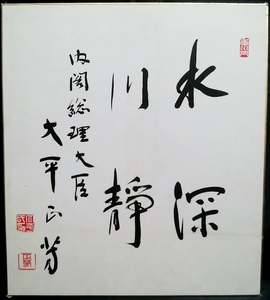 水深
川靜
内閣総理大臣
大平正芳